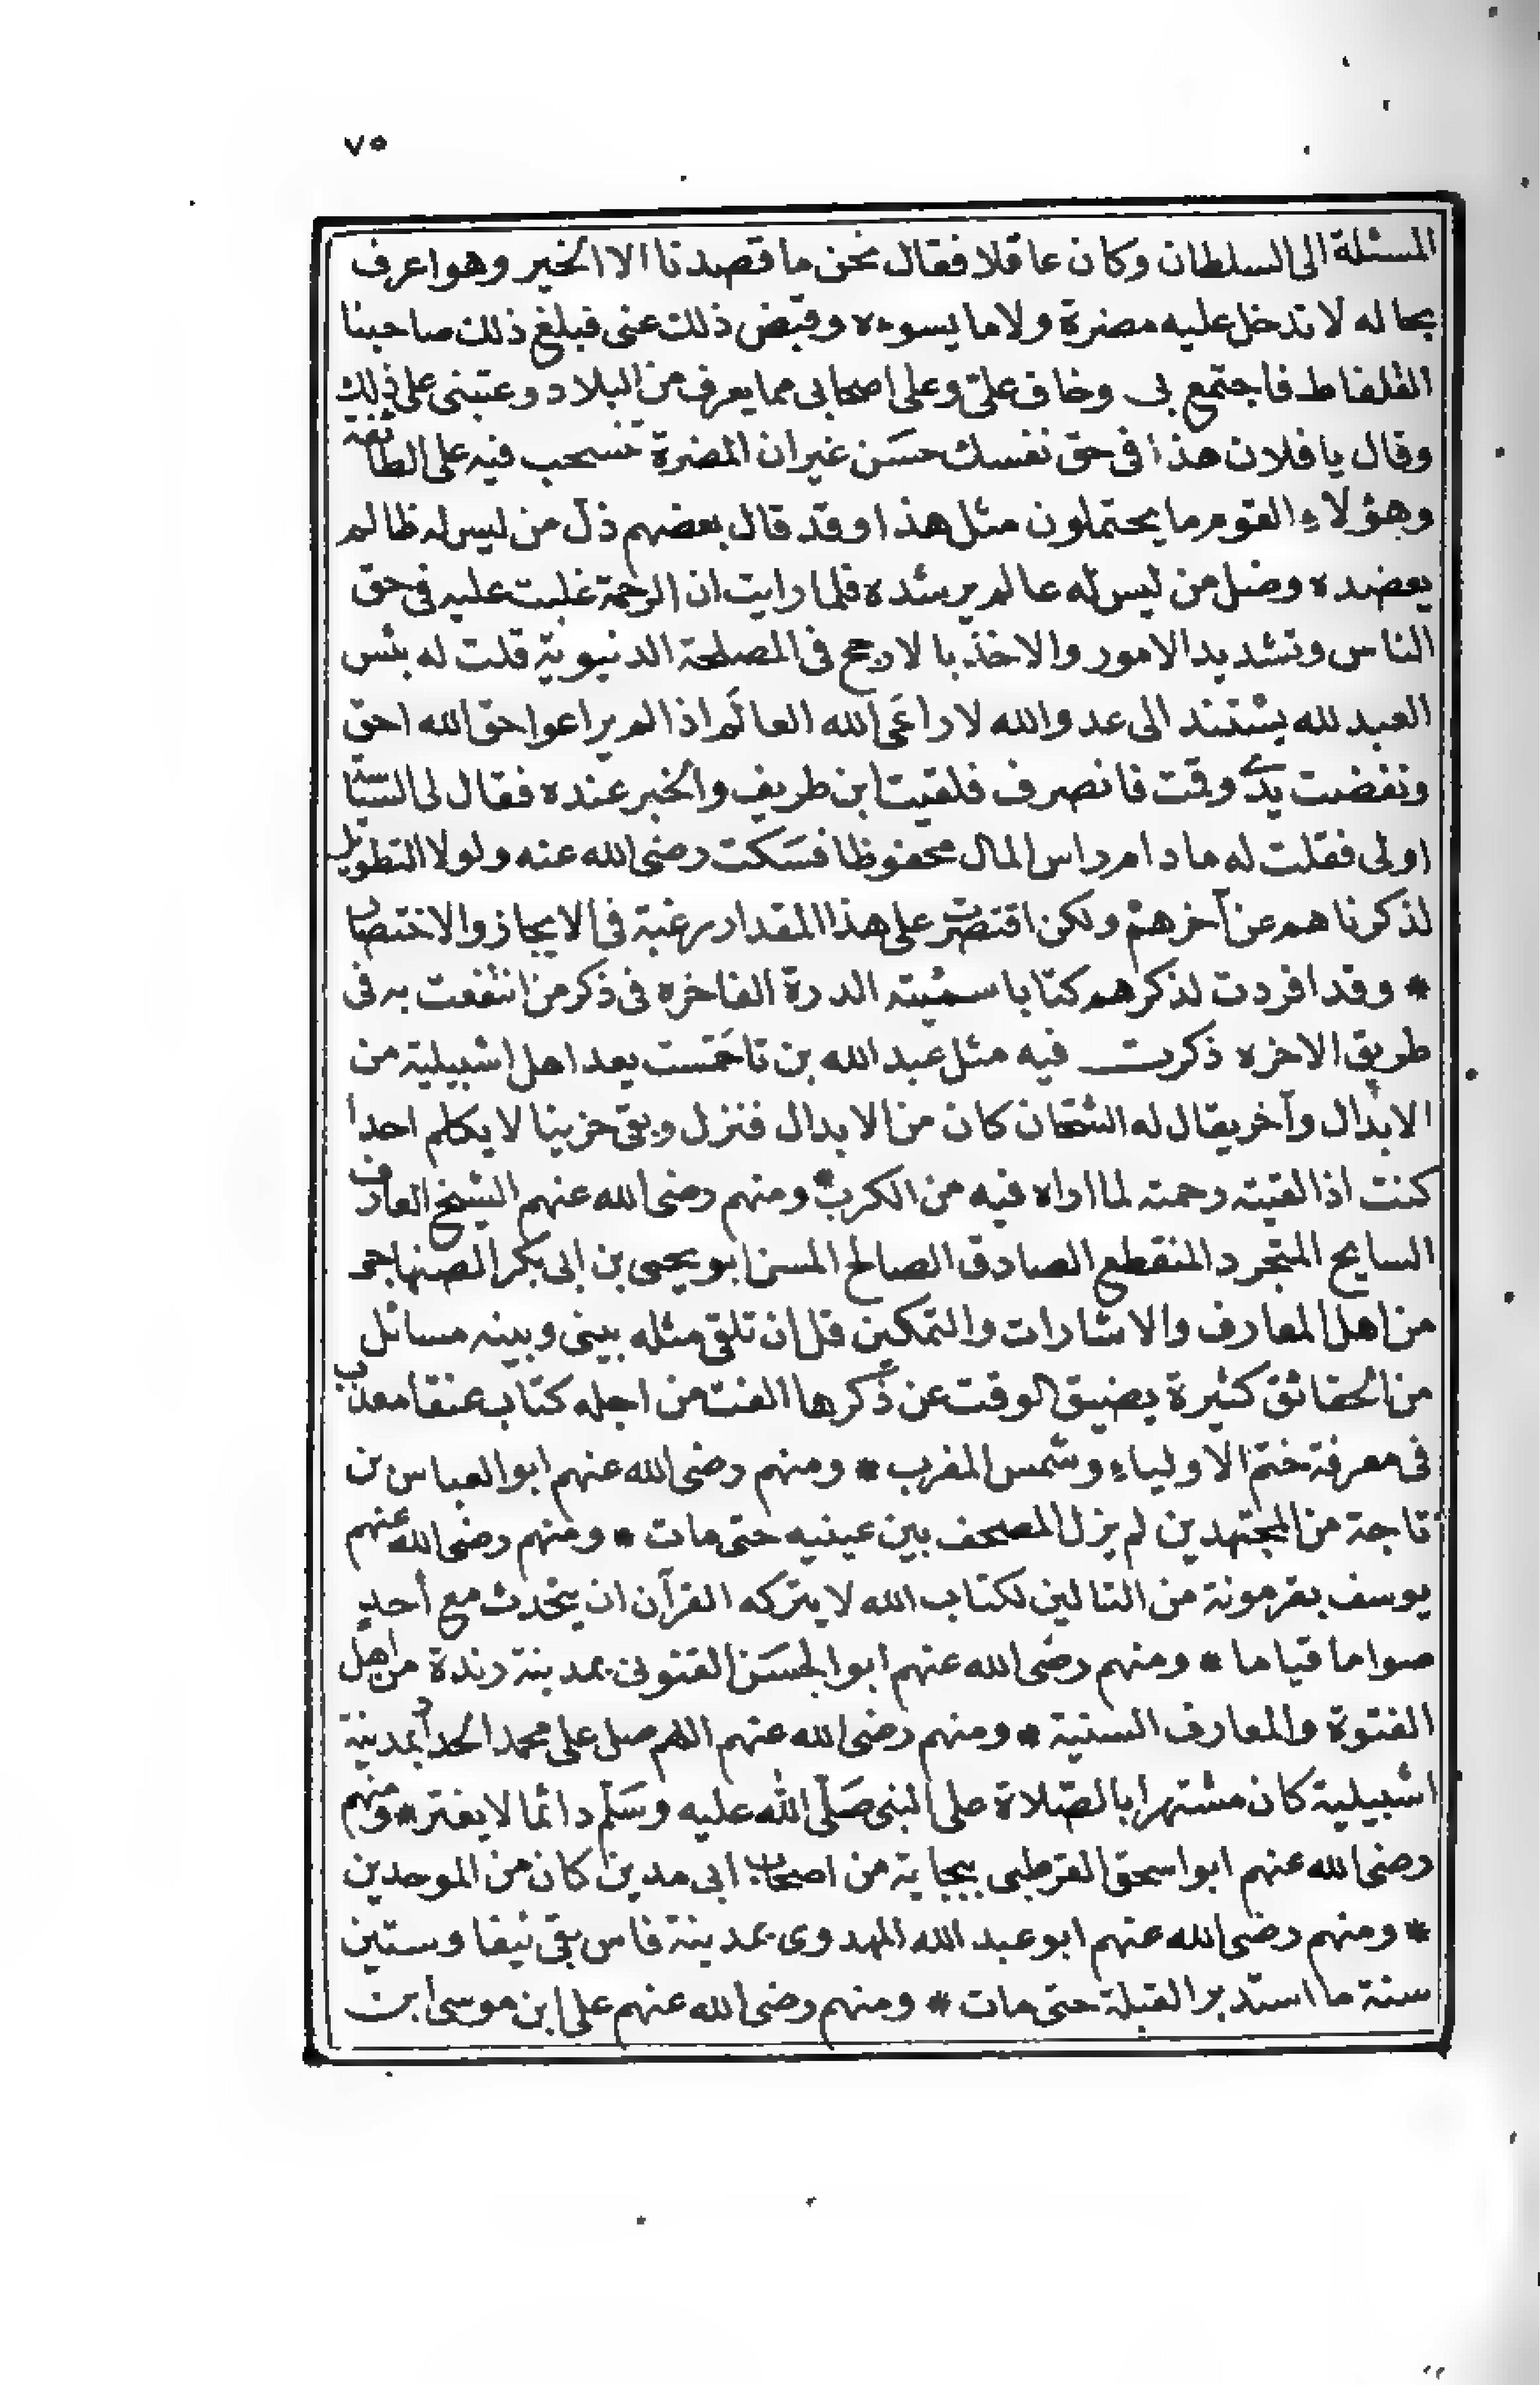 ٧٥
المسئلة الى السلطان وكان عاقلا فقال نحن ما قصدنا الا الخير وهو اعرف
بحاله لا تدخل عليه مضرة ولا ما يسوءه وقبض ذلك عنى فبلغ ذلك صاحبنا
القلفاط فاجتمع بى وخاف علىّ وعلى اصحابى مما يعرف من البلاد وعتبنى على ذلك
وقال يا فلان هذا فى حق نفسك حسَن غير ان المضرة تنسحب فيه على الطائفة
وهؤلاءِ القوم ما يحتملون مثل هذا وقد قال بعضهم ذلّ من ليس له ظالم
يعضده وضل من ليس له عالم يرشده فلما رايت ان الرحمة غلبت عليه فى حق
الناس وتشديد الامور والاخذ بالارجح فى المصلحة الدنيوية قلت له بئس
العبد لله يستند الى عدو الله لا راعَى الله العالَم اذا لم يراعوا حق الله احق
ونفضت يدىّ وقت فانصرف فلقيت ابن طريف والخبر عنده فقال لى السياسة
اولى فقلت له ما دام راس المال محفوظا فسَكت رضى الله عنه ولولا التطويل
لذكرناهم عن آخرهم ولكن اقتصرت على هذا المقدار رغبة فى الايجاز والاختصار
* وقد افردت لذكرهم كتابا سميته الدرة الفاخره فى ذكر من انتفعت به فى
طريق الاخره ذكرت فيه مثل عبد الله بن تاخمست يعد اهل اشبيلية من
الابدال وآخر يقال له الشقان كان من الابدال فنزل وبقى حزينا لا يكلم احداً
كنت اذا لقيته رحمته لما اراه فيه من الكرب * ومنهم رضى الله عنهم الشيخ العارف
السايح المتجرد المنقطع الصادق الصالح المسن ابو يحيى بن ابى بكر الصنهاجى
من اهل المعارف والاشارات والتمكين قل ان تلقى مثله بينى وبينه مسائل
من الحقائق كثيرة يضيق الوقت عن ذكرها الفت من اجله كتاب عنقا مغرب
فى معرفة ختم الاولياءِ وشمس المغرب * ومنهم رضى الله عنهم ابو العباس بن
تاجة من المجتهدين لم يزل المصحف بين عينيه حتى مات * ومنهم رضى الله عنهم
يوسف بقرمونة من التالين لكتاب الله لا يتركه القرآن ان يتحدث مع أحدٍ
صواما قياما * ومنهم رضى الله عنهم ابو الحسَن القنونى بمدينة رندة من اهل
الفتوة والمعارف السنية * ومنهم رضى الله عنهم اللهم صل على محمد الحداد بمدينة
اشبيلية كان مشتهرا بالصّلاة على النبى صَلّى الله عليه وسَلّم دائما لا يفتر * ومنهم
رضى الله عنهم ابو اسحق القرطبى ببجاية من اصحاب ابى مدين كان من الموحدين
* ومنهم رضى الله عنهم ابو عبد الله المهدوى بمدينة فاس بقى نيفا وستين
سنة ما استدبر القبلة حتى مات * ومنهم رضى الله عنهم على ابن موسى ابن